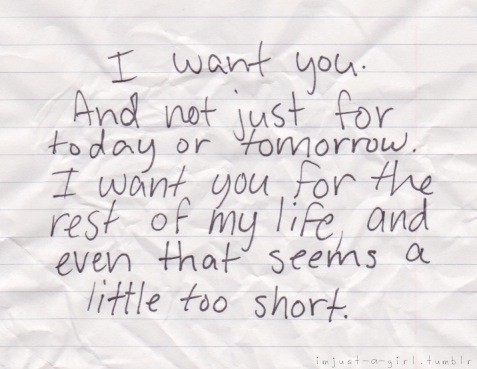 I want you.
And not just for
today or tomorrow.
I want you for the
rest of my life, and
even that seems a
little too short.
imjust-a-girl.tumblr